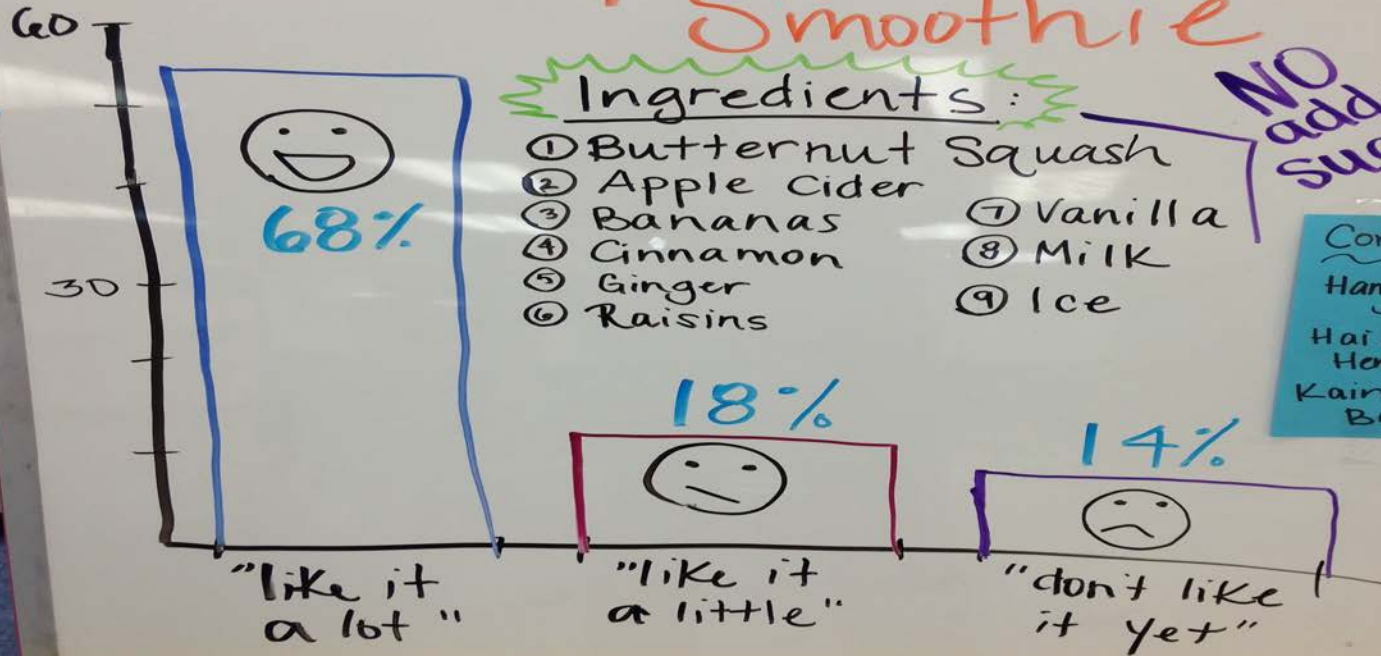 Smoothie
60
30
Ingredients:
① Butternut Squash
② Apple Cider
③ Bananas
④ Cinnamon
⑤ Ginger
⑥ Raisins
⑦ Vanilla
⑧ Milk
⑨ Ice
NO
add
68%
18%
14%
"like it
a lot"
"like it
a little"
"don't like
it yet"
Hai